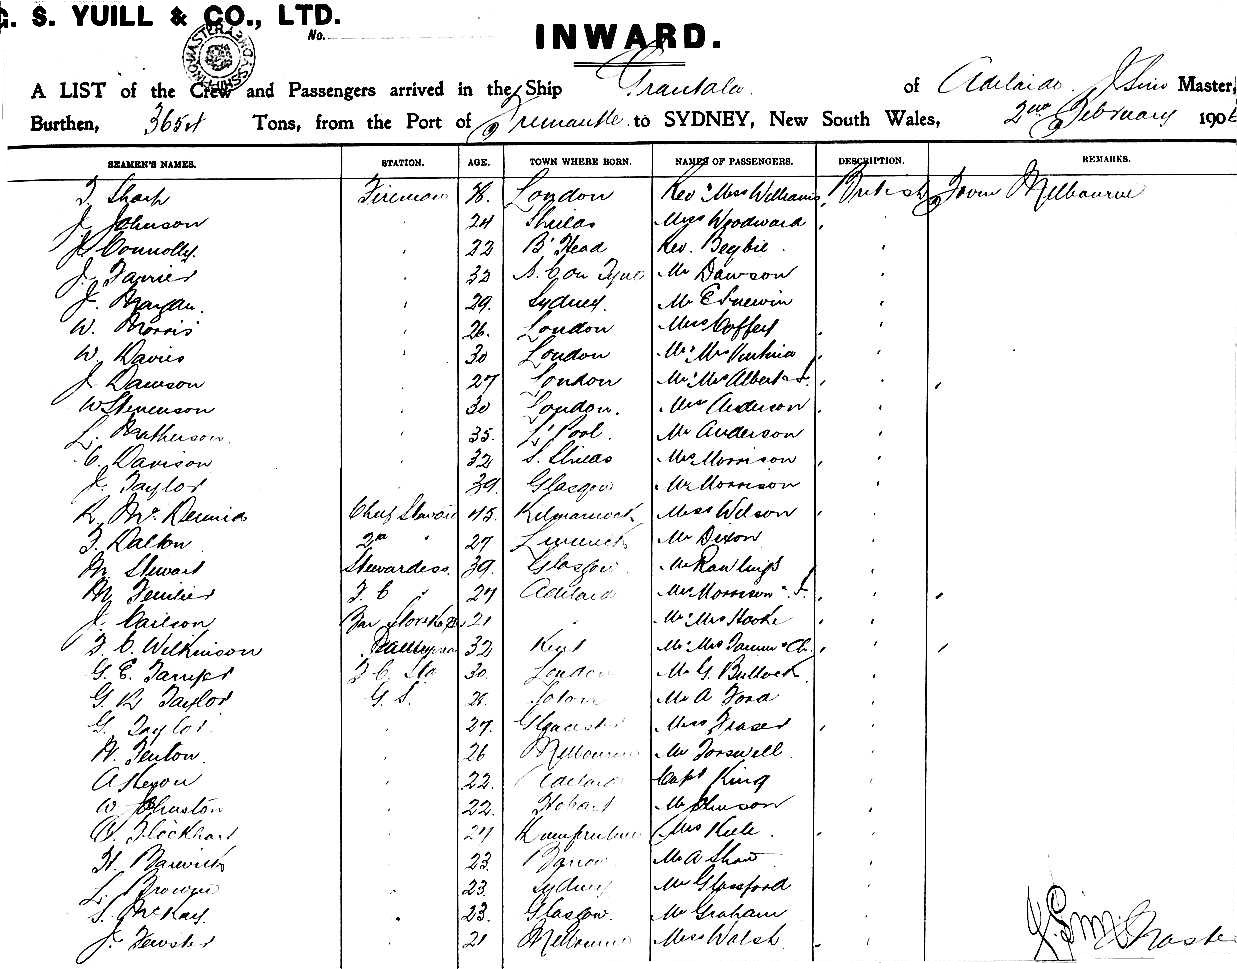 G. S. YUILL & CO., LTD.
No.
INWARD.
A LIST of the Crew and Passengers arrived in the Ship Grantala of Adelaide J Sim Master,
Burthen, 3654 Tons, from the Port of Fremantle to SYDNEY, New South Wales, 2nd February 190
SEAMEN'S NAMES. STATION. AGE. TOWN WHERE BORN. NAMES OF PASSENGERS. DESCRIPTION. REMARKS.
Fireman London Rev & Mrs Williams British From Melbourne
J. Johnson " 24 Shields Mrs Woodward "
J. Connolly " 22 B'Head Rev. Begbie "
J. Farrier " 32 N. C on Tyne Mr Dawson "
J. " 29. Sydney. Mr E "
W. Morris " 26. London Miss Coffey "
W. Davies " 30 London Mr & Mrs "
J Dawson " 27 London Mr & Mrs Albert & " "
W Stevenson " 30 London. Mrs Anderson "
L. Matherson " 35. L'Pool. Mr Anderson "
C. Davison " 32 S. Shields Mrs Morrison "
J. Taylor " 39. Glasgow Mr Morrison "
R. McDermid Chief Steward 45. Kilmarnock Miss Wilson "
F. Dalton 2nd " 27 Limerick Mr Dixon "
M Stewart Stewardess 39. Glasgow Mr Rawlings "
M F. C " 27 Adelaide Mrs Morrison & " "
J. Carlson Bar Storekpr 21 " Mr & Mrs Hooke "
F. C. Wilkinson Pantryman 32 Kent Mr & Mrs & Ch. " "
G. E. F C Std 30. London Mr G. Bullock "
G R Taylor G. S. Mr A Ford "
G. Taylor " 27. Gloucester Miss Fraser "
W. Fenton " 26 Melbourne Mr Forswell "
A Kenon " 22. Adelaide Capt King "
W Johnston " 22. Hobart Mr Johnson "
Flockhart " 27 Mrs Kiele "
H. Barwick " 23. Barrow Mr A Shaw "
L. Browne " 23. Sydney Mr Glassford "
S. McKay " 23. Glasgow. Mr Graham "
J. Fewster " 21 Melbourne Miss Walsh "
J. Sim Master